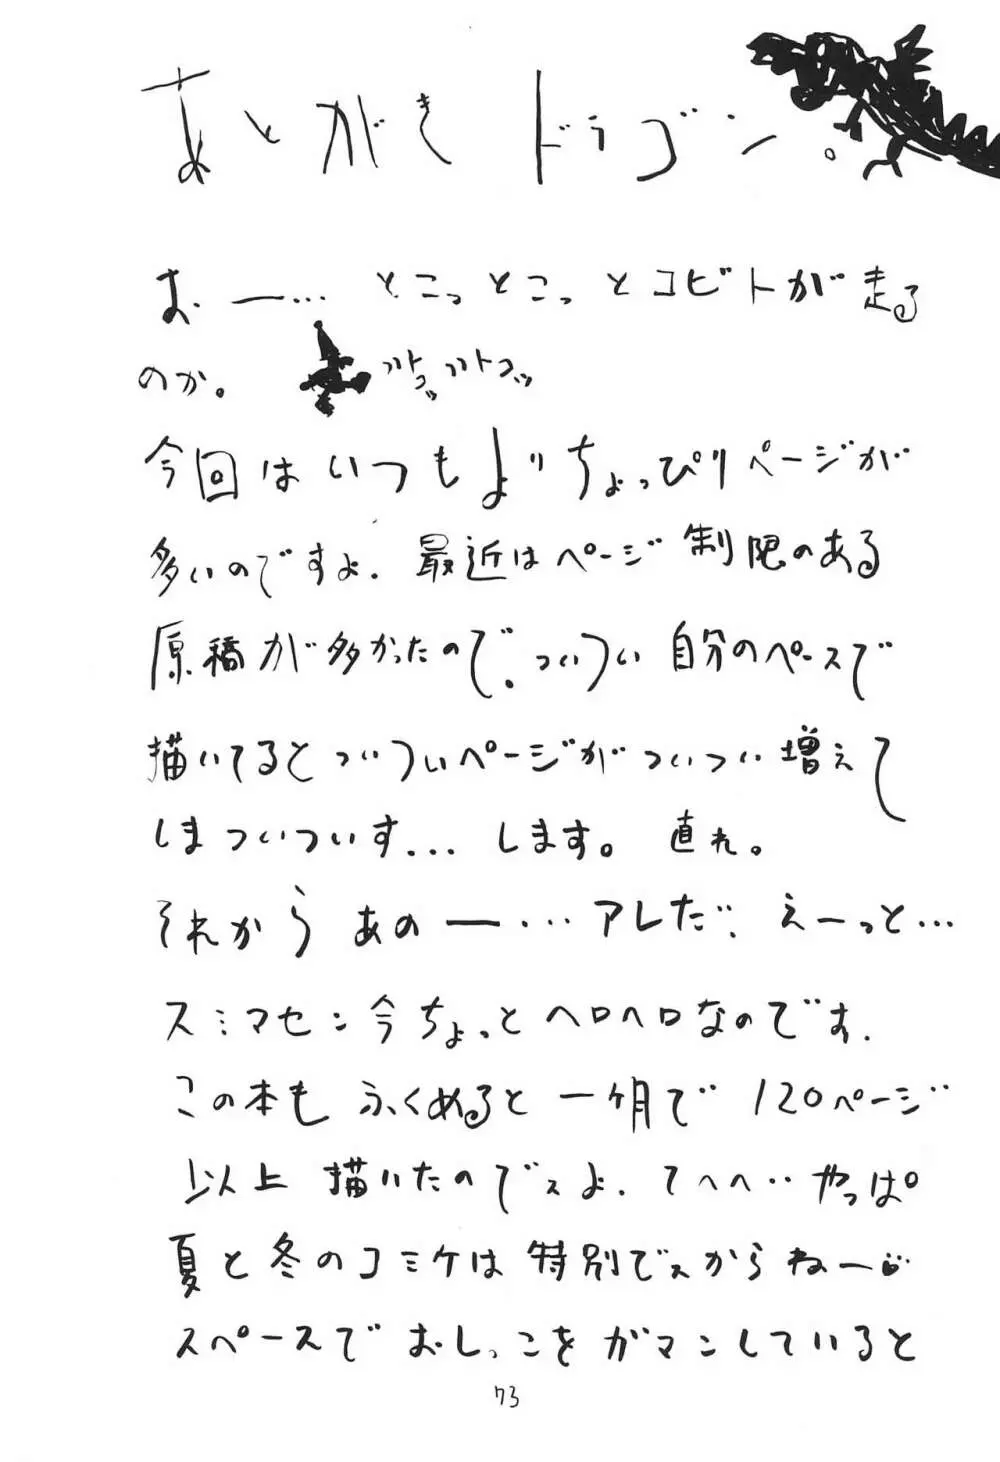 あとがきドラゴン。
おー… とこっとこっとコビトが走る
のか。 トコッ トコッ
今回はいつもよりちょっぴりページが
多いのですよ。最近はページ制限のある
原稿が多かったので、ついつい自分のペースで
描いてるとついついページがついつい増えて
しまついついす… します。直れ。
それからあのー…アレだ。えーっと…
スミマセン今ちょっとヘロヘロなのです。
この本もふくめると一ヶ月で120ページ
以上描いたのでスよ。てへへ‥やっぱ
夏と冬のコミケは特別でスからねー
スペースでおしっこをガマンしていると
73